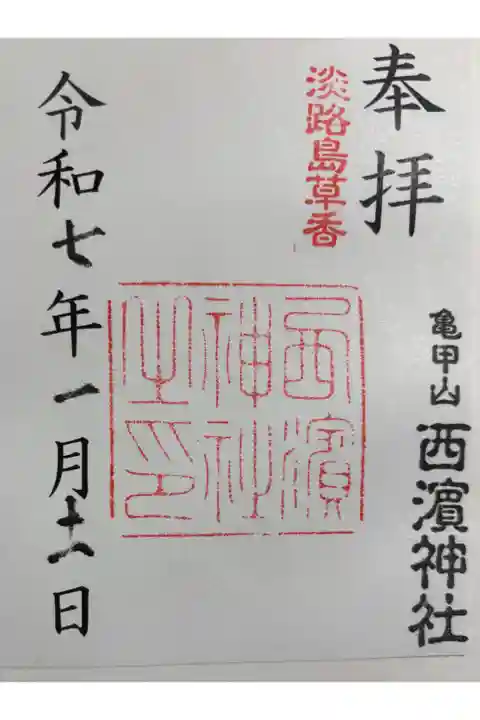 奉拝
淡路島草香
亀甲山
西濱神社
西濱
神社
之印
令和七年一月十八日